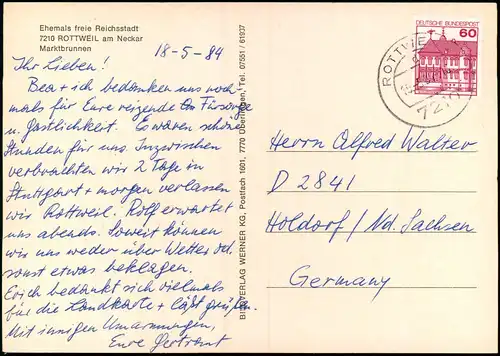 Ehemals freie Reichsstadt
7210 ROTTWEIL am Neckar
Marktbrunnen
18-5-84
Ihr Lieben!
Bea + ich bedanken uns noch-
mals für Eure reizende Fürsorge
u. Gastlichkeit. Es waren schöne
Stunden für uns. Inzwischen
verbrachten wir 2 Tage in
Stuttgart + morgen verlassen
wir Rottweil. Rolf erwartet
uns abends. Soweit können
wir uns weder über Wetter od.
sonst etwas beklagen.
Erich bedankt sich vielmals
für die Landkarte + läßt grüßen.
Mit innigen Umarmungen,
Eure Gertraut
BILDVERLAG WERNER KG, Postfach 1601, 7770 Überlingen, Tel. 07551 / 61937
DEUTSCHE BUNDESPOST
60
ROTTWEIL
Herrn Alfred Walter
D 2841
Holdorf / Nd. Sachsen
Germany